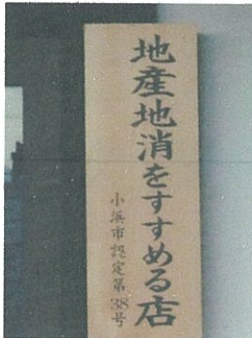 地産地消をすすめる店
小浜市認定第38号